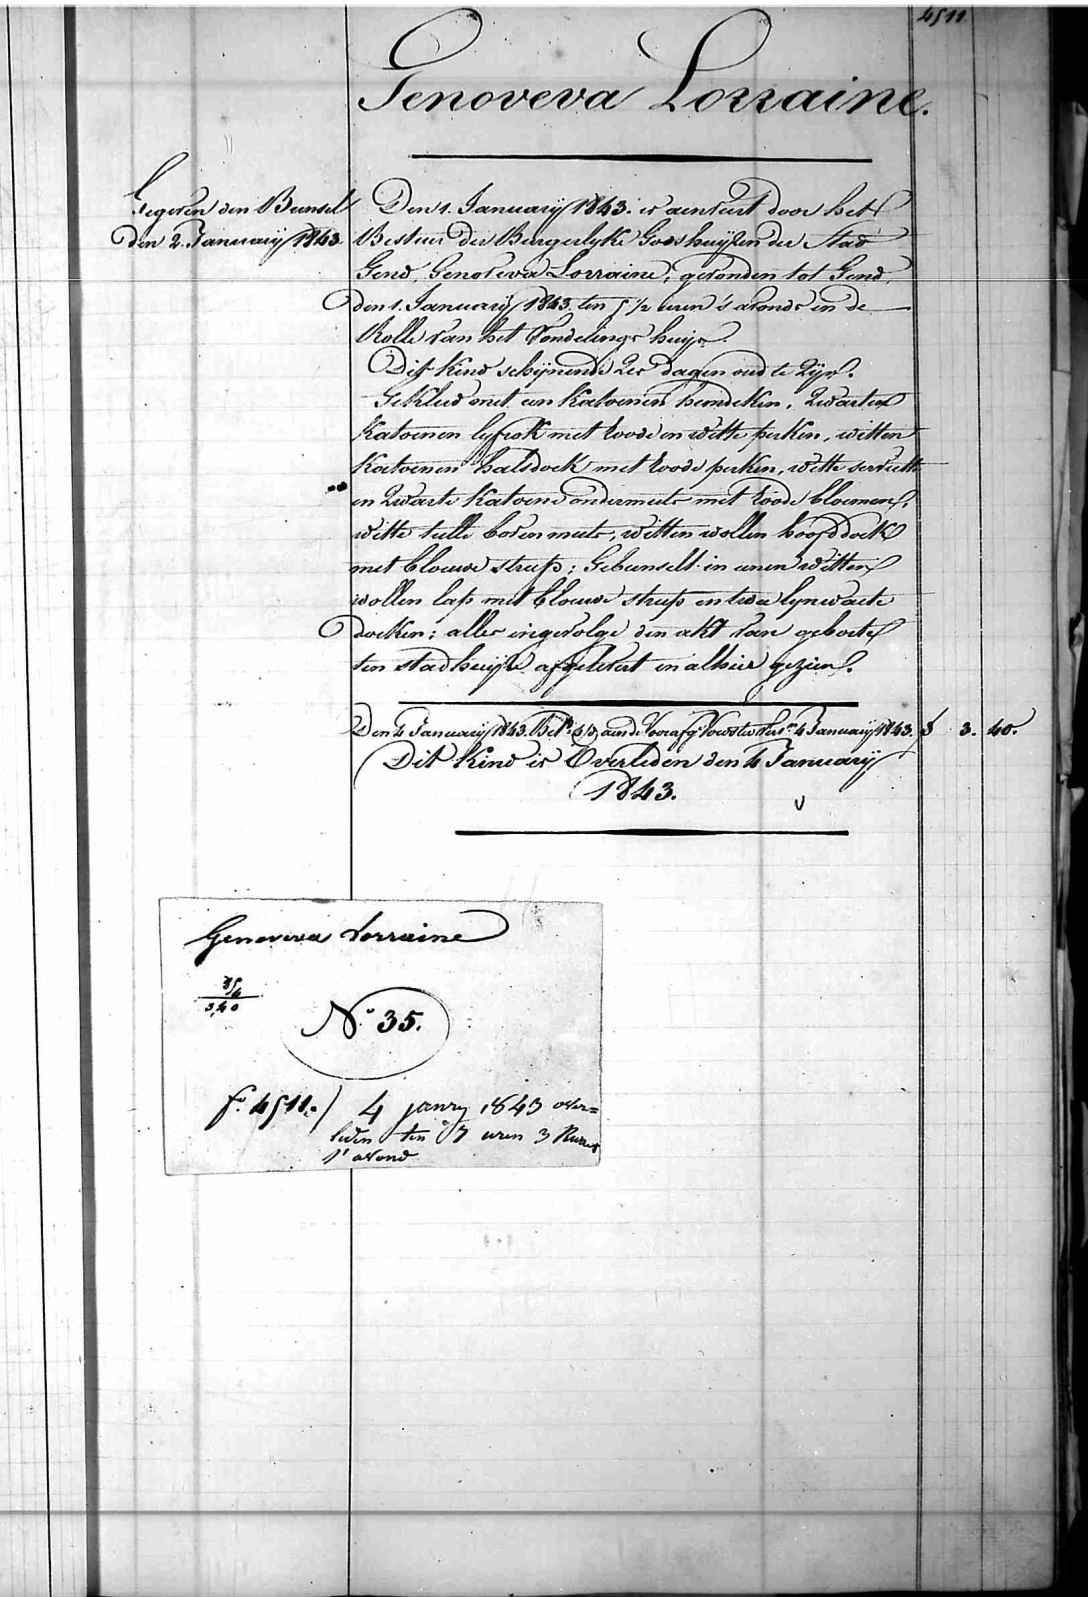 4511
Genoveva Lorraine.
Gegeven den Bunsel
den 2. January 1843.
Den 1. January 1843. is aenveird door het
Bestuer der Burgerlyke Godshuijsen der Stad
Gend, Genoveva Lorraine, gevonden tot Gend,
den 1. January 1843. ten 5 1/2 uren 's avonds in de
Rolle van het Vondelings huijs.
Dit kind schijnende zes dagen oud te zijn.
Gekleed met een katoenen hemdeken, zwarten
katoenen lyfrok met roode en witte perken, witten
katoenen halsdoek met roode perken, witte serviette
en zwarte katoene ondermuts met roode bloemen,
witte tulle bovenmuts, witten wollen hoofddoek
met blouwe streep: Gebunselt in eenen witten
wollen lap met blouwe streep en twee lynwaete
doeken: alles ingevolge den akt van geboorte
ten stadhuijse afgelevert en alhier gezien.
Den 4 January 1843. Bet. aen de 4 January 1843. f 3. 40.
Dit kind is Overleden den 4 January
1843.
Genoveva Lorraine
3,40
N° 35.
f° 4511. 4 janry 1843 over=
leden ten 7 uren 3
s' avond